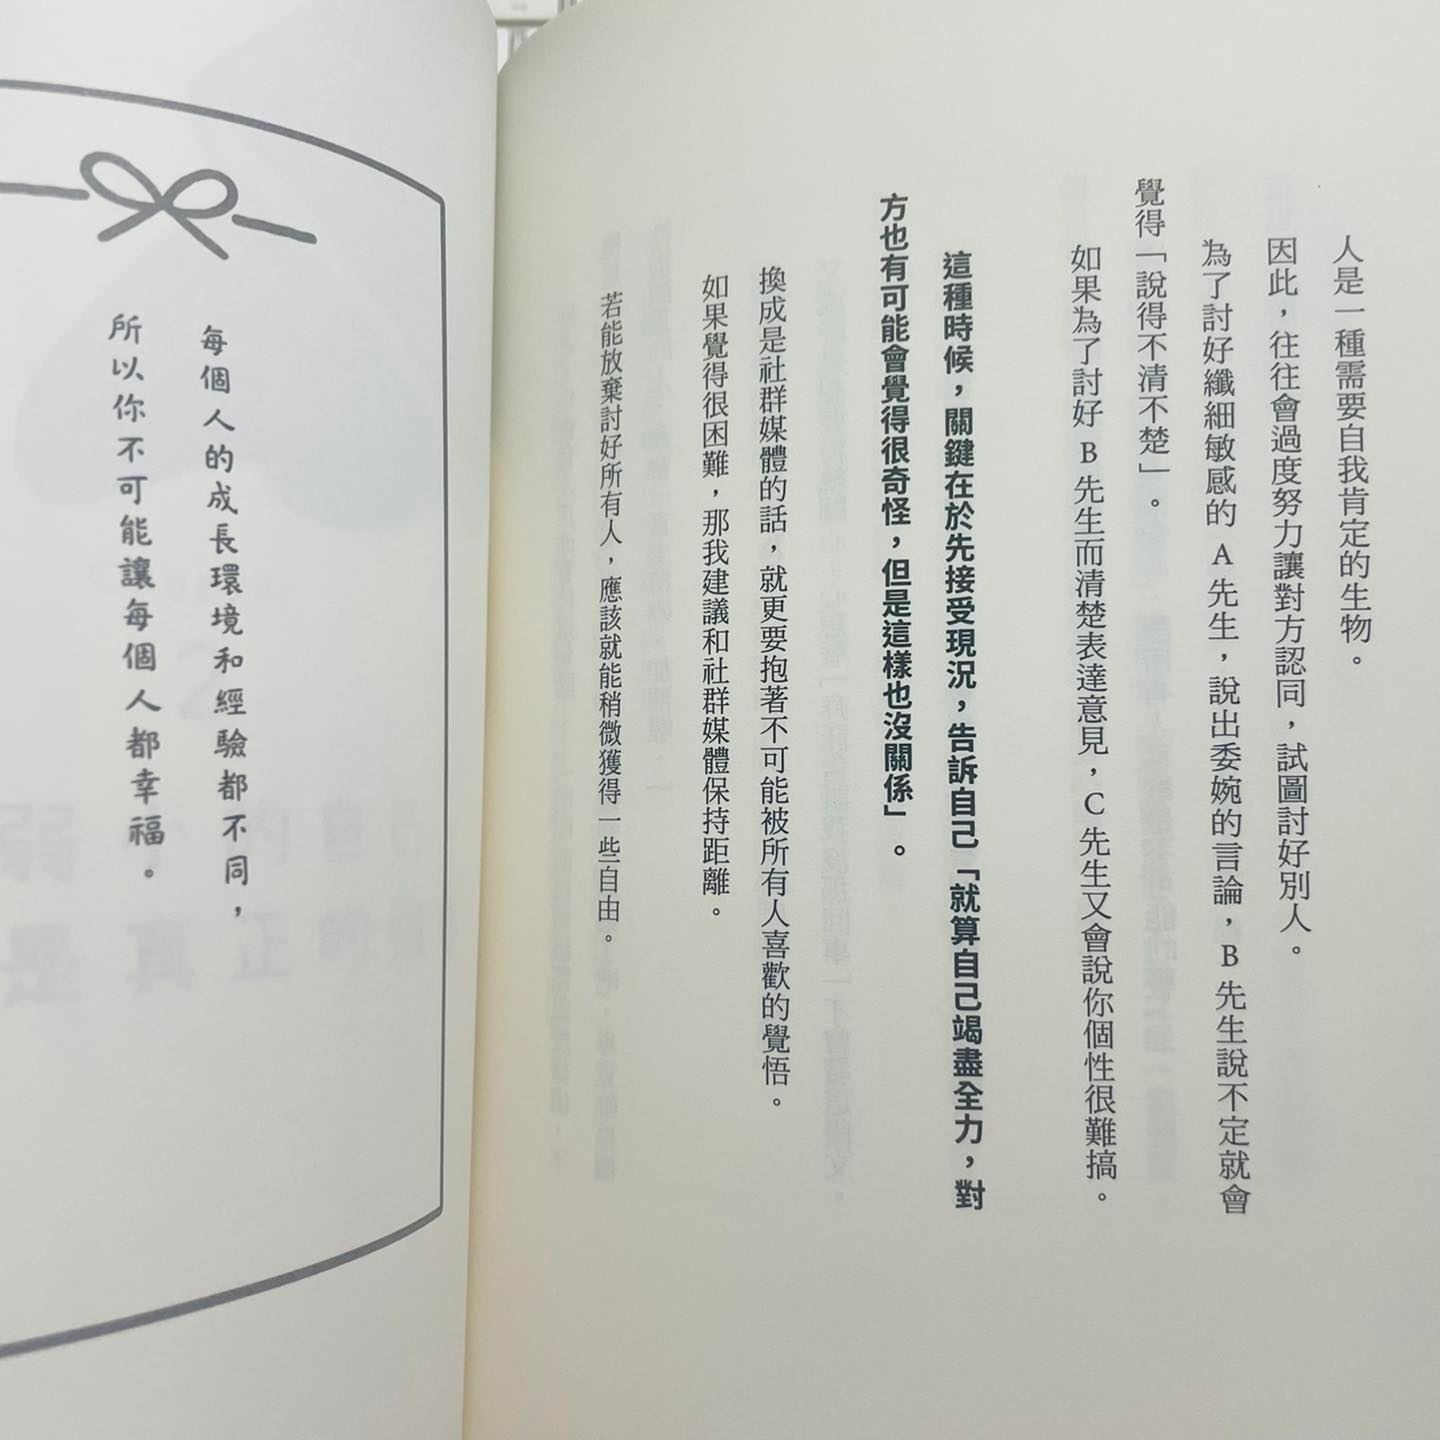 人是一種需要自我肯定的生物。
因此，往往會過度努力讓對方認同，試圖討好別人。
為了討好纖細敏感的 A 先生，說出委婉的言論，B 先生說不定就會
覺得「說得不清不楚」。
如果為了討好 B 先生而清楚表達意見，C 先生又會說你個性很難搞。
這種時候，關鍵在於先接受現況，告訴自己「就算自己竭盡全力，對
方也有可能會覺得很奇怪，但是這樣也沒關係」。
換成是社群媒體的話，就更要抱著不可能被所有人喜歡的覺悟。
如果覺得很困難，那我建議和社群媒體保持距離。
若能放棄討好所有人，應該就能稍微獲得一些自由。
每個人的成長環境和經驗都不同，
所以你不可能讓每個人都幸福。